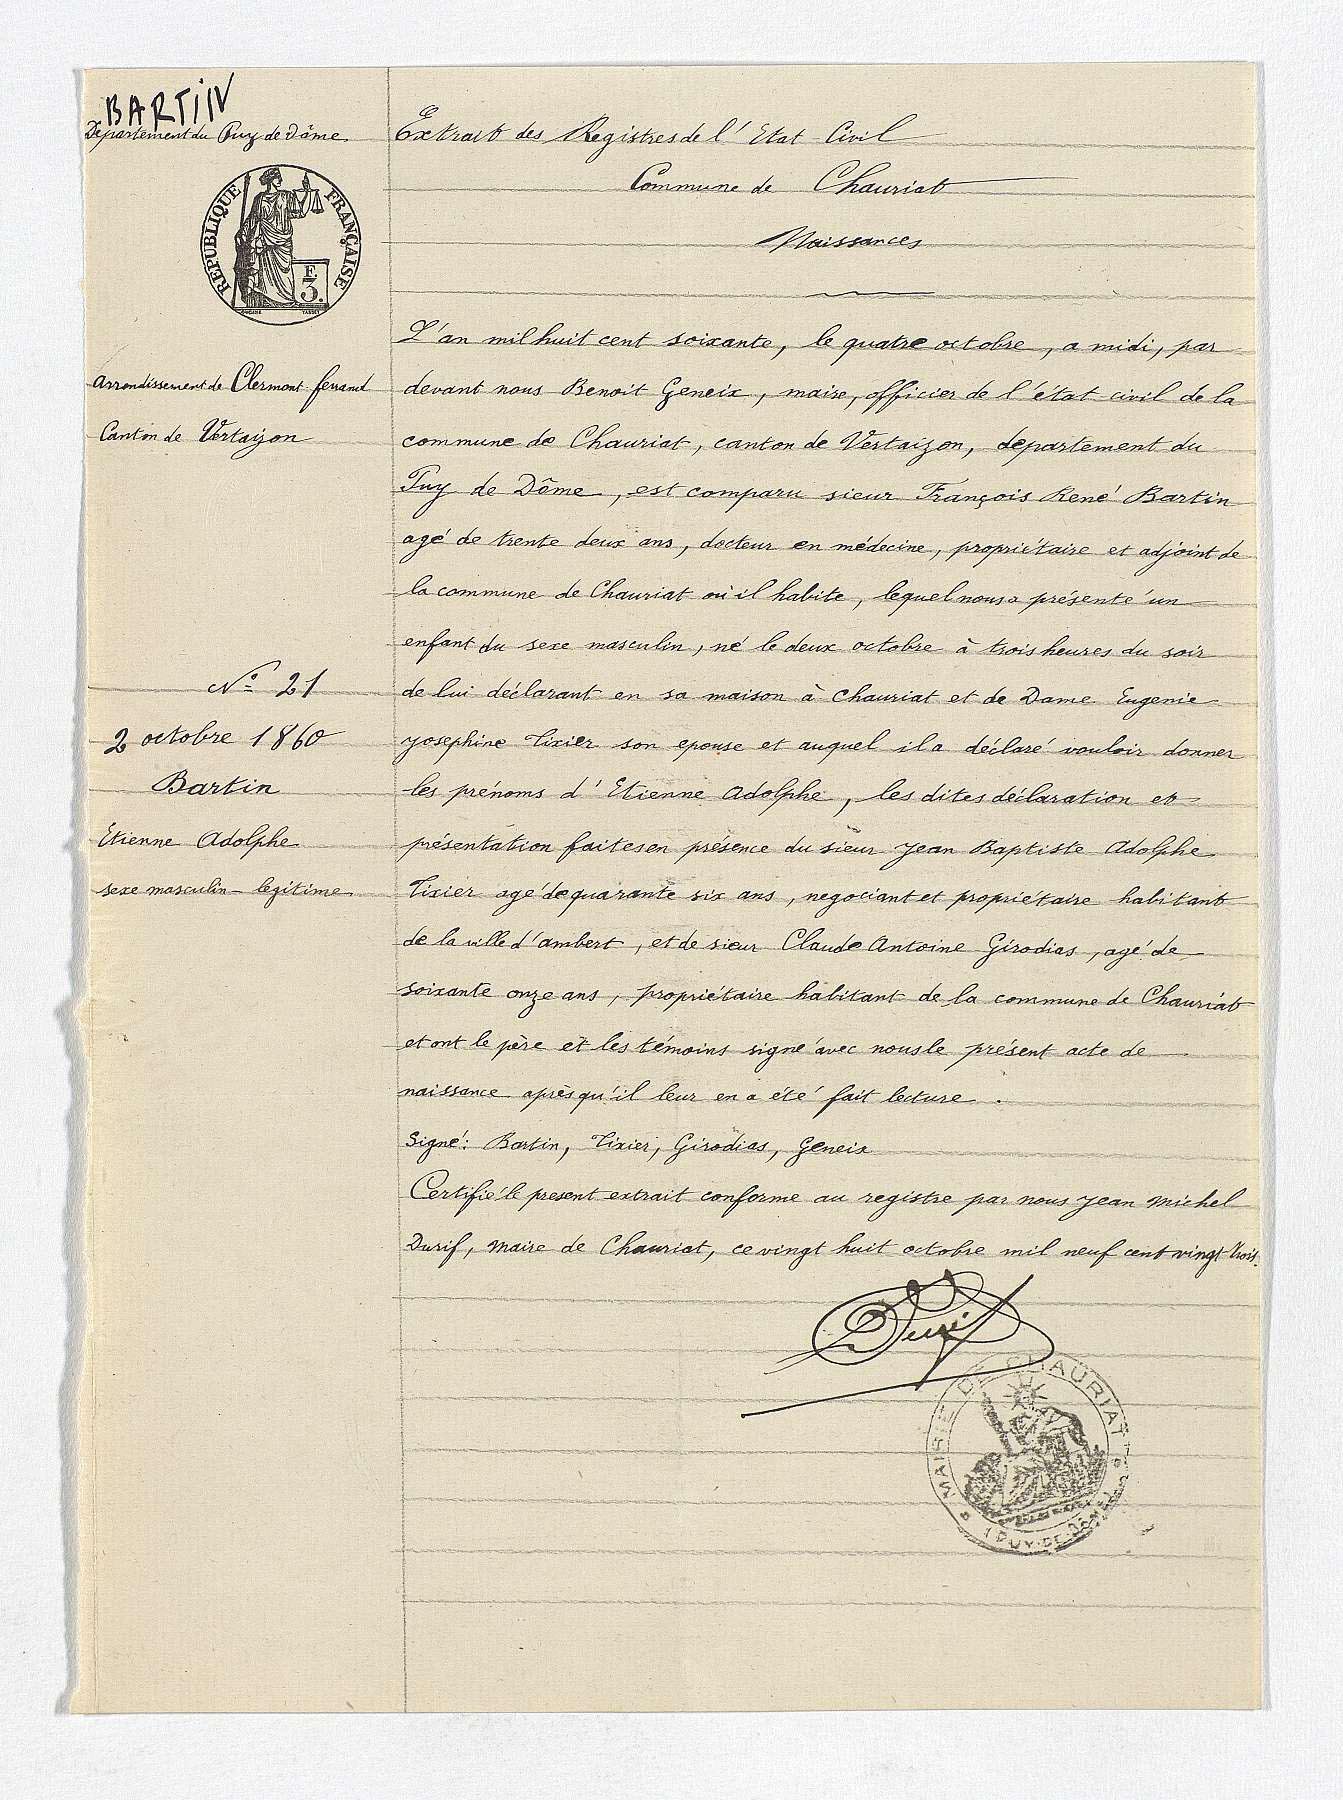 BARTIN
Département du Puy de Dôme
REPUBLIQUE FRANÇAISE
F.
3.
Arrondissement de Clermont ferrand
Canton de Vertaizon
N° 21
2 octobre 1860
Bartin
Etienne Adolphe
sexe masculin - légitime
Extrait des Registres de l'Etat-Civil
Commune de Chauriat
Naissances
L'an mil huit cent soixante, le quatre octobre, a midi, par
devant nous Benoit Geneix, maire, officier de l'état civil de la
commune de Chauriat, canton de Vertaizon, département du
Puy de Dôme, est comparu sieur François René Bartin
agé de trente deux ans, docteur en médecine, propriétaire et adjoint de
la commune de Chauriat où il habite, lequel nous a présenté un
enfant du sexe masculin, né le deux octobre à trois heures du soir
de lui déclarant en sa maison à Chauriat et de Dame Eugenie
Josephine Tixier son epouse et auquel il a déclaré vouloir donner
les prénoms d'Etienne Adolphe, les dites déclaration et
présentation faites en présence du sieur Jean Baptiste Adolphe
Tixier agé de quarante six ans, negociant et propriétaire habitant
de la ville d'ambert, et de sieur Claude Antoine Girodias, agé de
soixante onze ans, propriétaire habitant de la commune de Chauriat
et ont le père et les témoins signé avec nous le présent acte de
naissance après qu'il leur en a été fait lecture.
Signé: Bartin, Tixier, Girodias, Geneix
Certifié le present extrait conforme au registre par nous Jean Michel
Durif, Maire de Chauriat, ce vingt huit octobre mil neuf cent vingt trois.
Durif
MAIRIE DE CHAURIAT
(PUY-DE-DÔME)